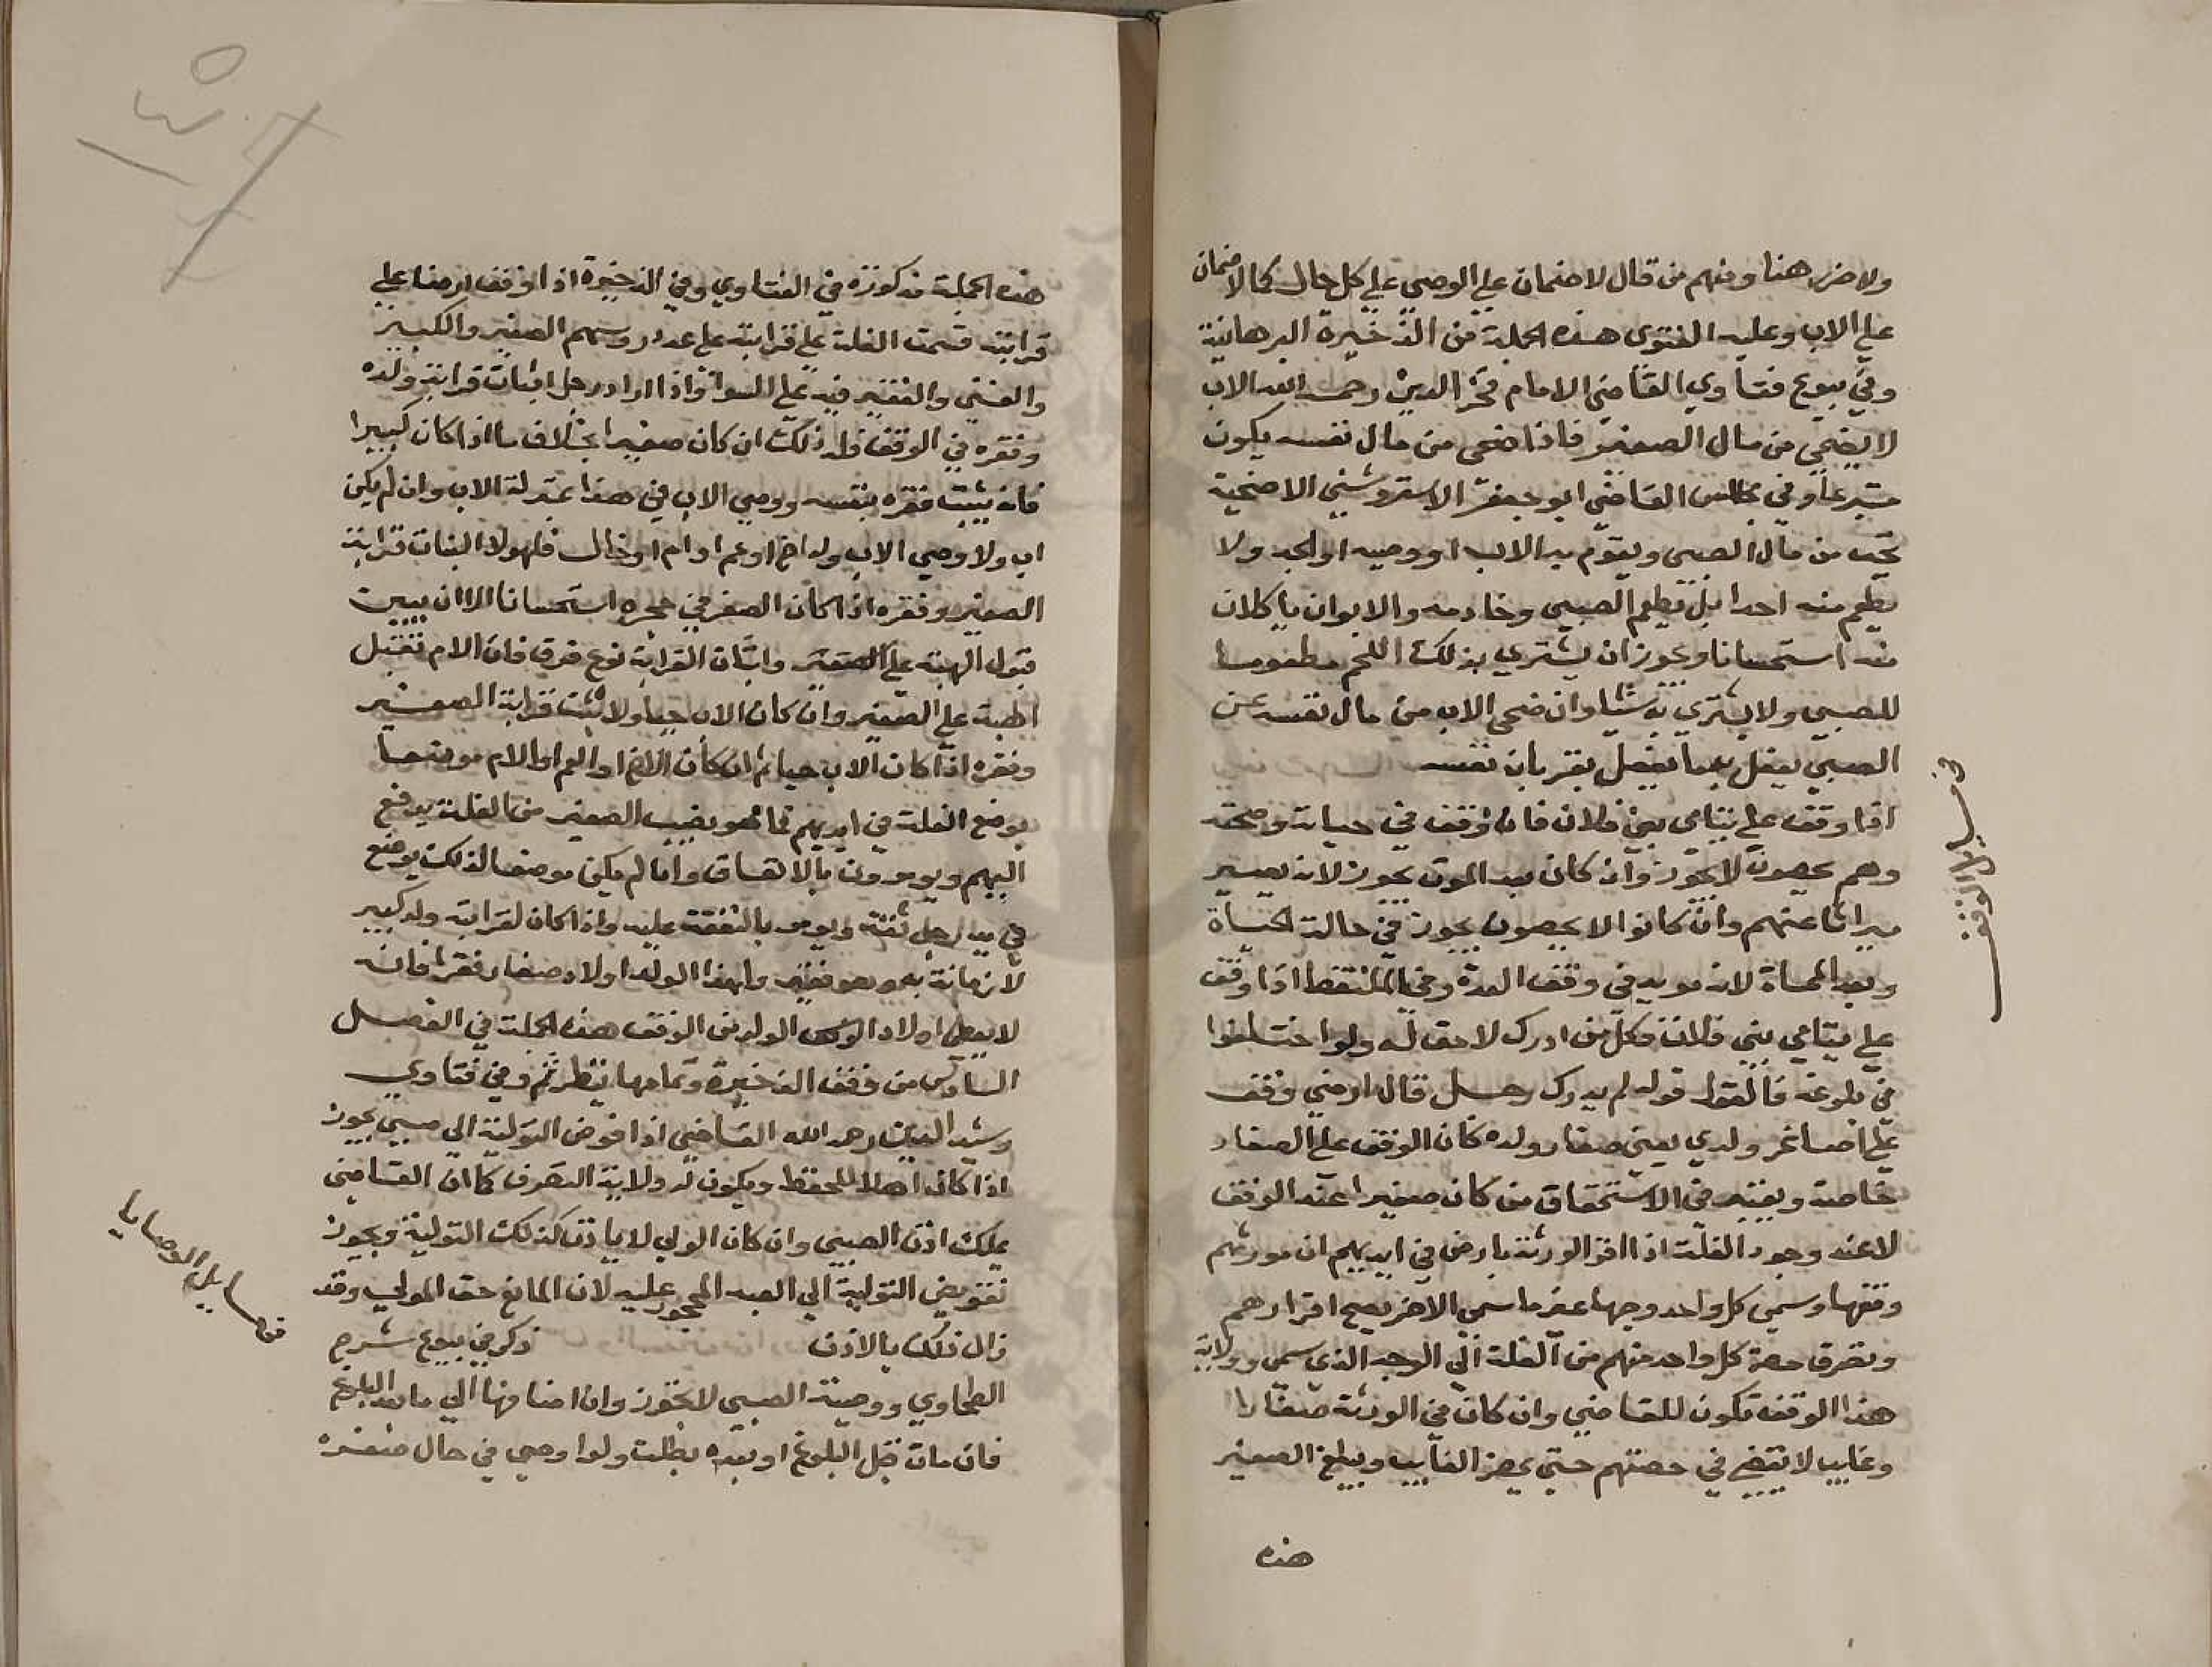 ولا ضرر هنا ومنهم من قال لا ضمان علي الوصي علي كل حال كما لا ضمان
علي الاب وعليه الفتوى هذه الجملة من الذخيرة البرهانية
وفي بيوع فتاوي القاضي الامام فخر الدين رحمه الله الاب
لا يضحي من مال الصغير فاذا ضحى من مال نفسه يكون
متبرعا وفي مجالس القاضي ابو جعفر الاستروشني الاضحية
تجب من مال الصبى ويقوم به الاب او وصيه او الجد ولا
يطعم منه احدا بل يطعم الصبي وخادمه والابوان ياكلان
منه استحسانا ويجوز ان يشتري بذلك اللحم مطعوما
للصبي ولا يشتري به شا وان ضحى الاب من مال نفسه عن
الصبي يفعل بها يفعل بقربان نفسه
اذا وقف علي يتامى بني فلان فان وقف في حياته وصحته
وهم يحصون لا يجوز وان كان بعد الموت يجوز لانه يصير
ميراثا عنهم وان كانوا لا يحصون يجوز في حالة الحياة
وبعد المماة لانه موبد في وقف العدة وفي الملتقط اذا وقف
علي يتامي بني فلان فكل من ادرك لا حق له ولو اختلفوا
في بلوغه فالقول قوله لم يدرك رجل قال ارضي وقف
علي اصاغر ولدي يعني صغار ولده كان الوقف علي الصغار
خاصة ويعتبر في الاستحقاق من كان صغيرا عند الوقف
لا عند وجود الغلة اذا اقر الورثة بارض في ايديهم ان مورثهم
وقفها وسمي كل واحد وجها غير ما سمى الاخر يصح اقرارهم
وتصرف حصة كل واحد منهم من الغلة الي الوجه الذي سمي وولاية
هذا الوقف تكون للقاضي وان كان في الورثة صغارا
وغايب لا يقضي في حصتهم حتي يحضر الغايب ويبلغ الصغير
هذه
في مسايل الوقف
هذه الجملة مذكورة في الفتاوي وفي الذخيرة اذا وقف ارضا علي
قرابته قسمت الغلة علي قرابته علي عدد روسهم الصغير والكبير
والغني والفقير فيه علي السوا واذا اراد رجل اثبات قرابة ولده
وفقره في الوقف فله ذلك ان كان صغيرا بخلاف ما اذا كان كبيرا
فانه يثبت فقره بنفسه ووصي الاب في هذا بمنزلة الاب وان لم يكن
اب ولا وصي الاب وله اخ او عم او ام او خال فلهولا اثبات قرابة
الصغير وفقره اذا كان الصغير في حجره استحسانا الا ان بين
قبول الهبة علي الصغير واثبات القرابة نوع فرق فان الام تقبل
الهبة علي الصغير وان كان الاب حيا ولا يثبت قرابة الصغير
وفقره اذا كان الاب حيا ثم ان كان الاخ او العم او الام موضعا
يوضع الغلة في ايديهم فما هو نصيب الصغير من الغلة يدفع
اليهم ويومرون بالانفاق وان لم يكن موضعا لذلك يوضع
في يد رجل ثقة ويومر بالنفقة عليه واذا كان لقرابته ولد كبير
لا زمانة به وهو فقير ولهذا الولد اولاد صغار فقرا فانه
لا يعطى اولاد الولد من الوقف هذه الجملة في الفصل
السادس من وقف الذخيرة وتمامها ينظر ثم وفي فتاوي
رشيد الدين رحمه الله القاضي اذا فوض التولية الي صبي يجوز
اذا كان اهلا للحفظ ويكون له ولاية التصرف كما ان القاضي
يملك اذن الصبي وان كان الولي لا ياذن كذلك التولية ويجوز
تفويض التولية الي العبد المحجور عليه لان المانع حق المولي وقد
زال ذلك بالاذن ذكر في بيوع شرح
الطحاوي ووصية الصبي لا تجوز وان اضافها الي ما بعد البلوغ
فان مات قبل البلوغ او بعده بطلت ولو اوصي في حال صغره
في مسايل الوصايا